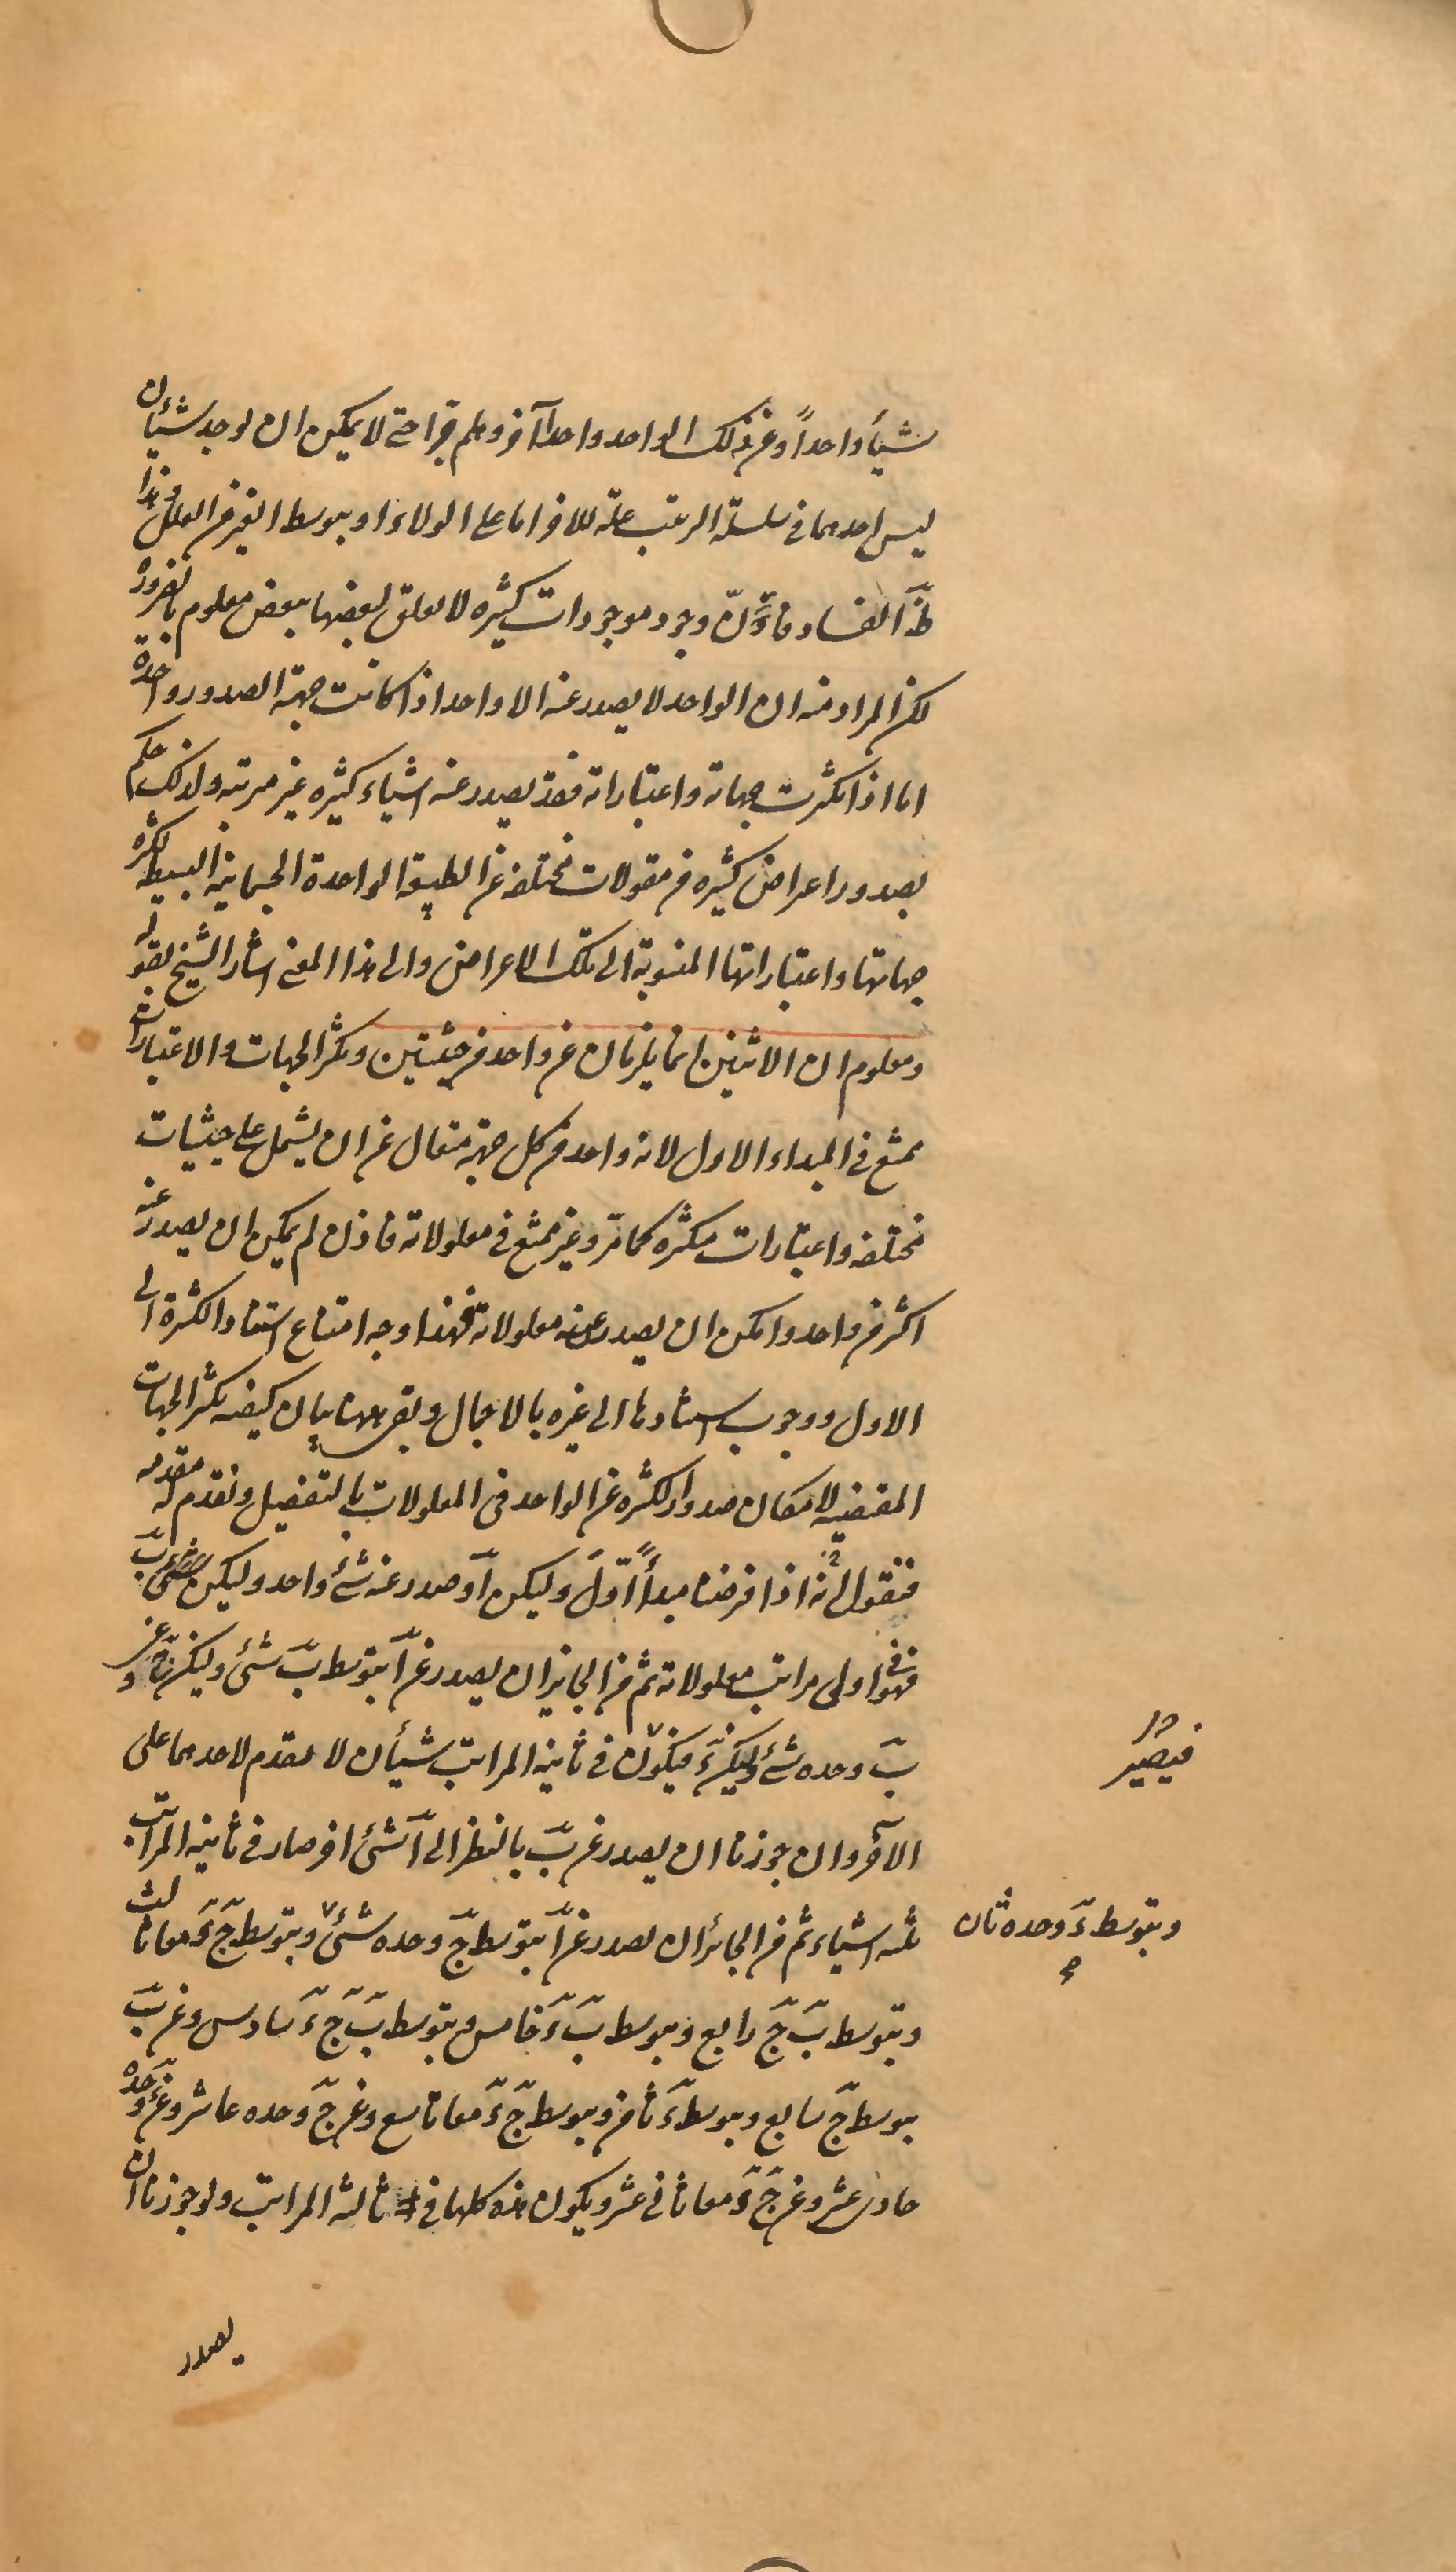 شيأ واحداً وعن ذلك الواحد واحداً آخر وهلم جرا حتى لا يمكن ان يوجد شيئان
ليس احدهما فى سلسلة الترتب علة للاخر اما على الولاء او بتوسط الغير من العلل وهذا
ظ الفساد فان وجود موجودات كثيره لا يتعلق بعضها ببعض معلوم بالضرورة
لكن المراد منه ان الواحد لا يصدر عنه الا واحد اذا كانت جهة الصدور واحدة
اما اذا تكثرت جهاته واعتباراته فقد يصدر عنه اشياء كثيره غير مرتبه ولذلك حكم
بصدور اعراض كثيره من مقولات مختلفه عن الطبيعة الواحدة الجسمانيه البسيطه لكثرة
جهاتها واعتباراتها المنسوبة الى تلك الاعراض والى هذا المعنى اشار الشيخ بقوله
ومعلوم ان الاثنين انما يلزمان عن واحد من حيثيتين وتكثر الجهات والاعتبارات
ممتنع فى المبداء الاول لانه واحد من كل جهة متعال عن ان يشتمل على حيثيات
مختلفه واعتبارات متكثره كما مرّ وغير ممتنع فى معلولاته فاذن لم يمكن ان يصدر عنه
اكثر من واحد وامكن ان يصدر عن معلولاته فهذا وجه امتناع استناد الكثرة الى
الاول ووجوب استنادها الى غيره بالاجمال وبقى ههنا بيان كيفيه تكثر الجهات
المقتضيه لامكان صدور الكثره عن الواحد فى المعلولات بالتفصيل ونقدم له مقدمه
فنقول انه اذا فرضنا مبدأً اوّل وليكن آ وصدر عنه شئ واحد وليكن بّ
فهو فى اولى مراتب معلولاته ثم من الجايز ان يصدر عن آ بتوسط بّ شئ وليكن جّ وعن
بّ وحده شئ وليكن ءّ فيكون فى ثانيه المراتب شيأن لا تقدم لاحدهما على
الآخر وان جوزنا ان يصدر عن بّ بالنظر الى آ شئ اخر صار فى ثانيه المراتب
ثلثه اشياء ثم من الجائز ان يصدر عن آ بتوسط جّ وحده شئ وبتوسط جّ ءّ معا ثالث
وبتوسط بّ جّ رابع وبتوسط بّ ءّ خامس وبتوسط بّ جّ ءّ سادس وعن بّ
بتوسط جّ سابع وبتوسط ءّ ثامن وبتوسط جّ ءّ معا تاسع وعن جّ وحده عاشر وعن ءّ وحده
حادى عشر وعن جّ ءّ معا ثانى عشر ويكون هذه كلها فى ثالثه المراتب ولو جوزنا ان
يصدر
فيصير
وبتوسط ءّ وحده ثان